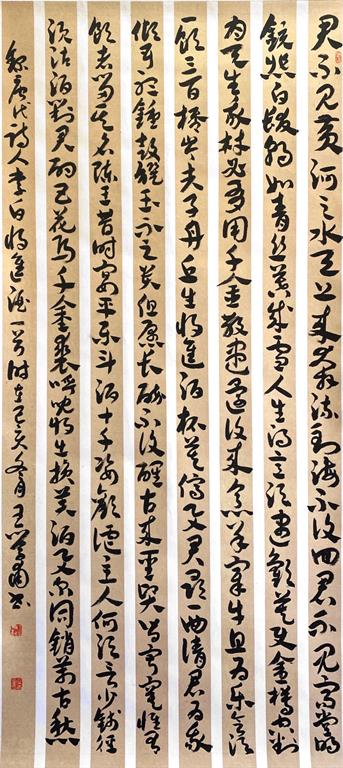 君不見黃河之水天上來奔流到海不復回君不見高堂明
鏡悲白髮朝如青絲暮成雪人生得意須盡歡莫使金樽空對
月天生我材必有用千金散盡還復來烹羊宰牛且為樂會須
一飲三百杯岑夫子丹丘生將進酒杯莫停與君歌一曲請君為我
傾耳聽鐘鼓饌玉不足貴但願長醉不復醒古來聖賢皆寂寞惟有
飲者留其名陳王昔時宴平樂斗酒十千恣歡謔主人何須言少錢徑
須沽酒對君酌五花馬千金裘呼兒將出換美酒與爾同銷萬古愁
錄唐代詩人李白將進酒一首時在己亥冬月王書